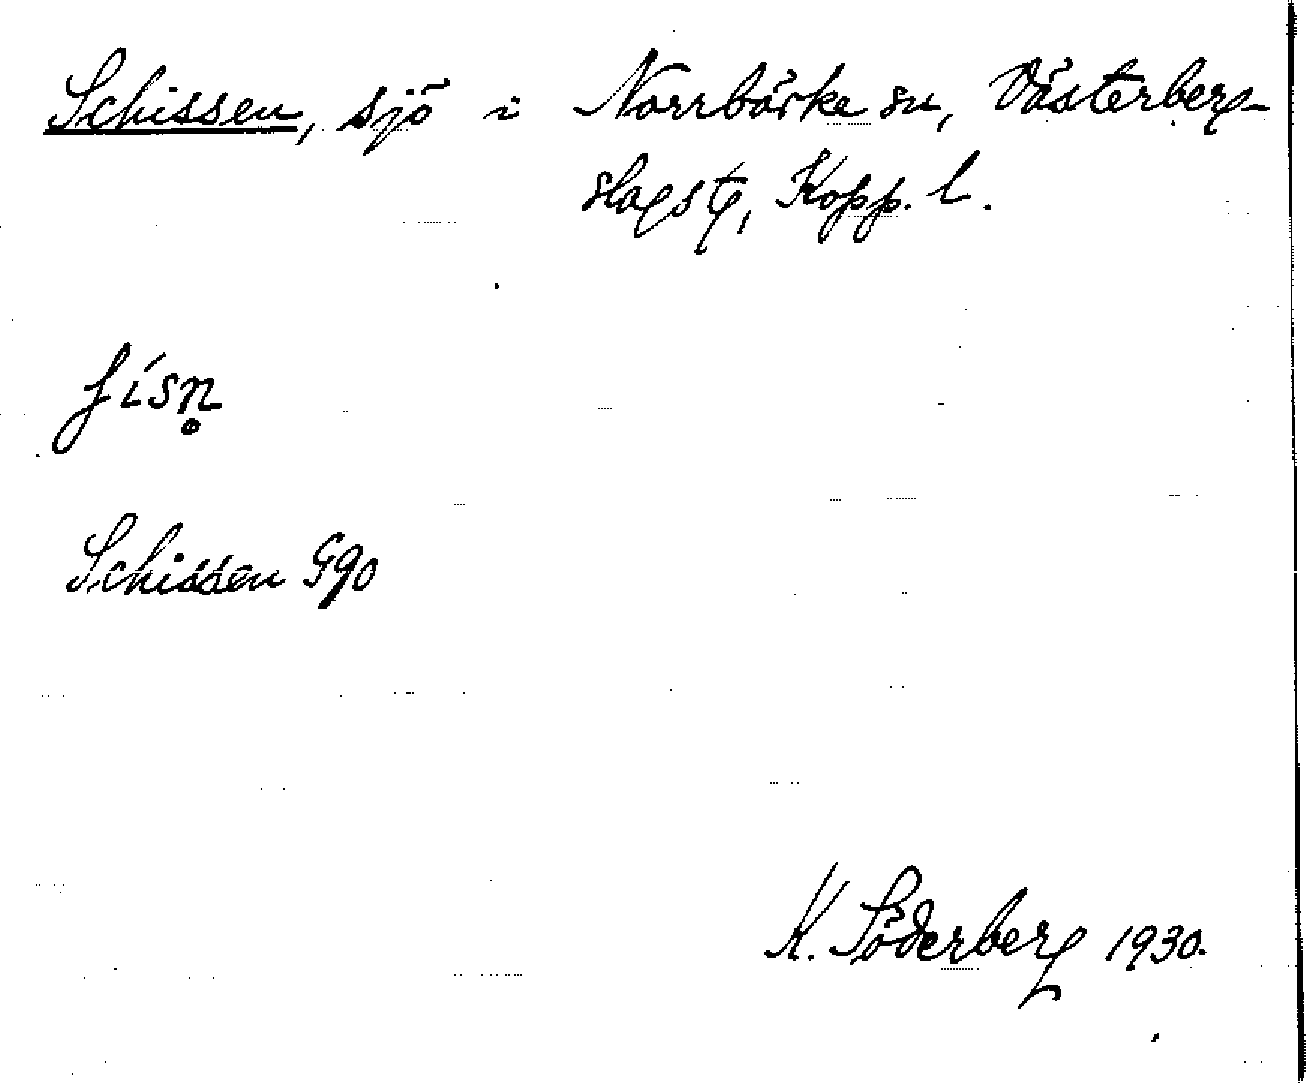 Schissen, sjö i Norrbärke sn, Västerberg-
slags tg, Kopp. l.
ʃísn̥
Schissen Ggo
K. Söderberg 1930.